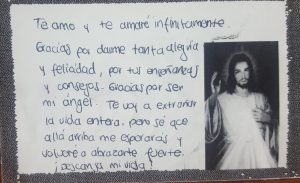 Te amo y te amaré infinitamente.
Gracias por darme tanta alegría
y felicidad, por tus enseñanzas
y consejos. Gracias por ser
mi ángel. Te voy a extrañar
la vida entera, pero sé que
allá arriba me esperarás y
volveré a abrazarte fuerte.
¡Descansa mi vida!